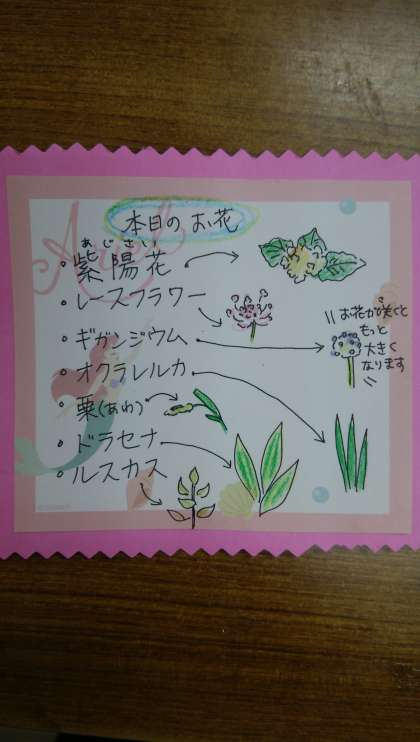 本日の お花
あじさい
紫陽花
レースフラワー
ギガンジウム
オクラレルカ
粟(あわ)
ドラセナ
ルスカス
お花が咲くと
もっと
大きく
なります
Ariel